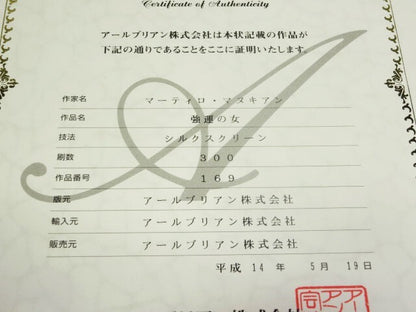 Certificate of Authenticity
アールブリアン株式会社は本状記載の作品が
下記の通りであることをここに証明いたします。
作家名 マーティロ・マヌキアン
作品名 強運の女
技法 シルクスクリーン
刷数 300
作品番号 169
版元 アールブリアン株式会社
輸入元 アールブリアン株式会社
販売元 アールブリアン株式会社
平成 14 年 5月 19日